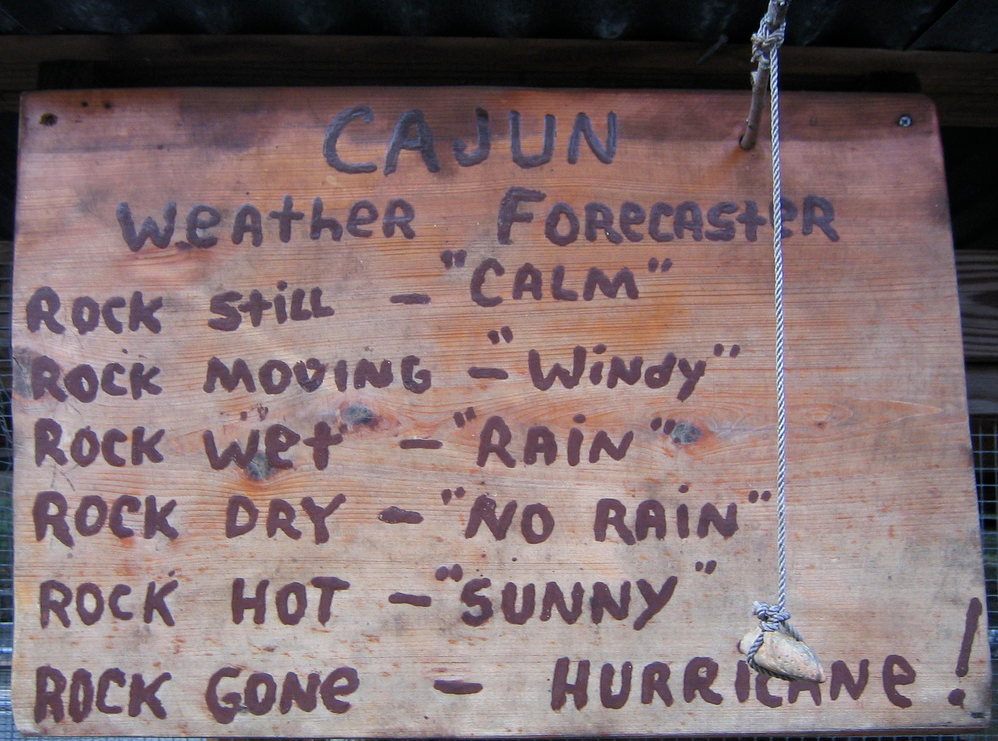 CAJUN
Weather Forecaster
Rock still - "CALM"
Rock moving - "Windy"
Rock wet - "Rain"
Rock DRY - "NO RAIN"
Rock HOT - "SUNNY"
Rock Gone - Hurricane!